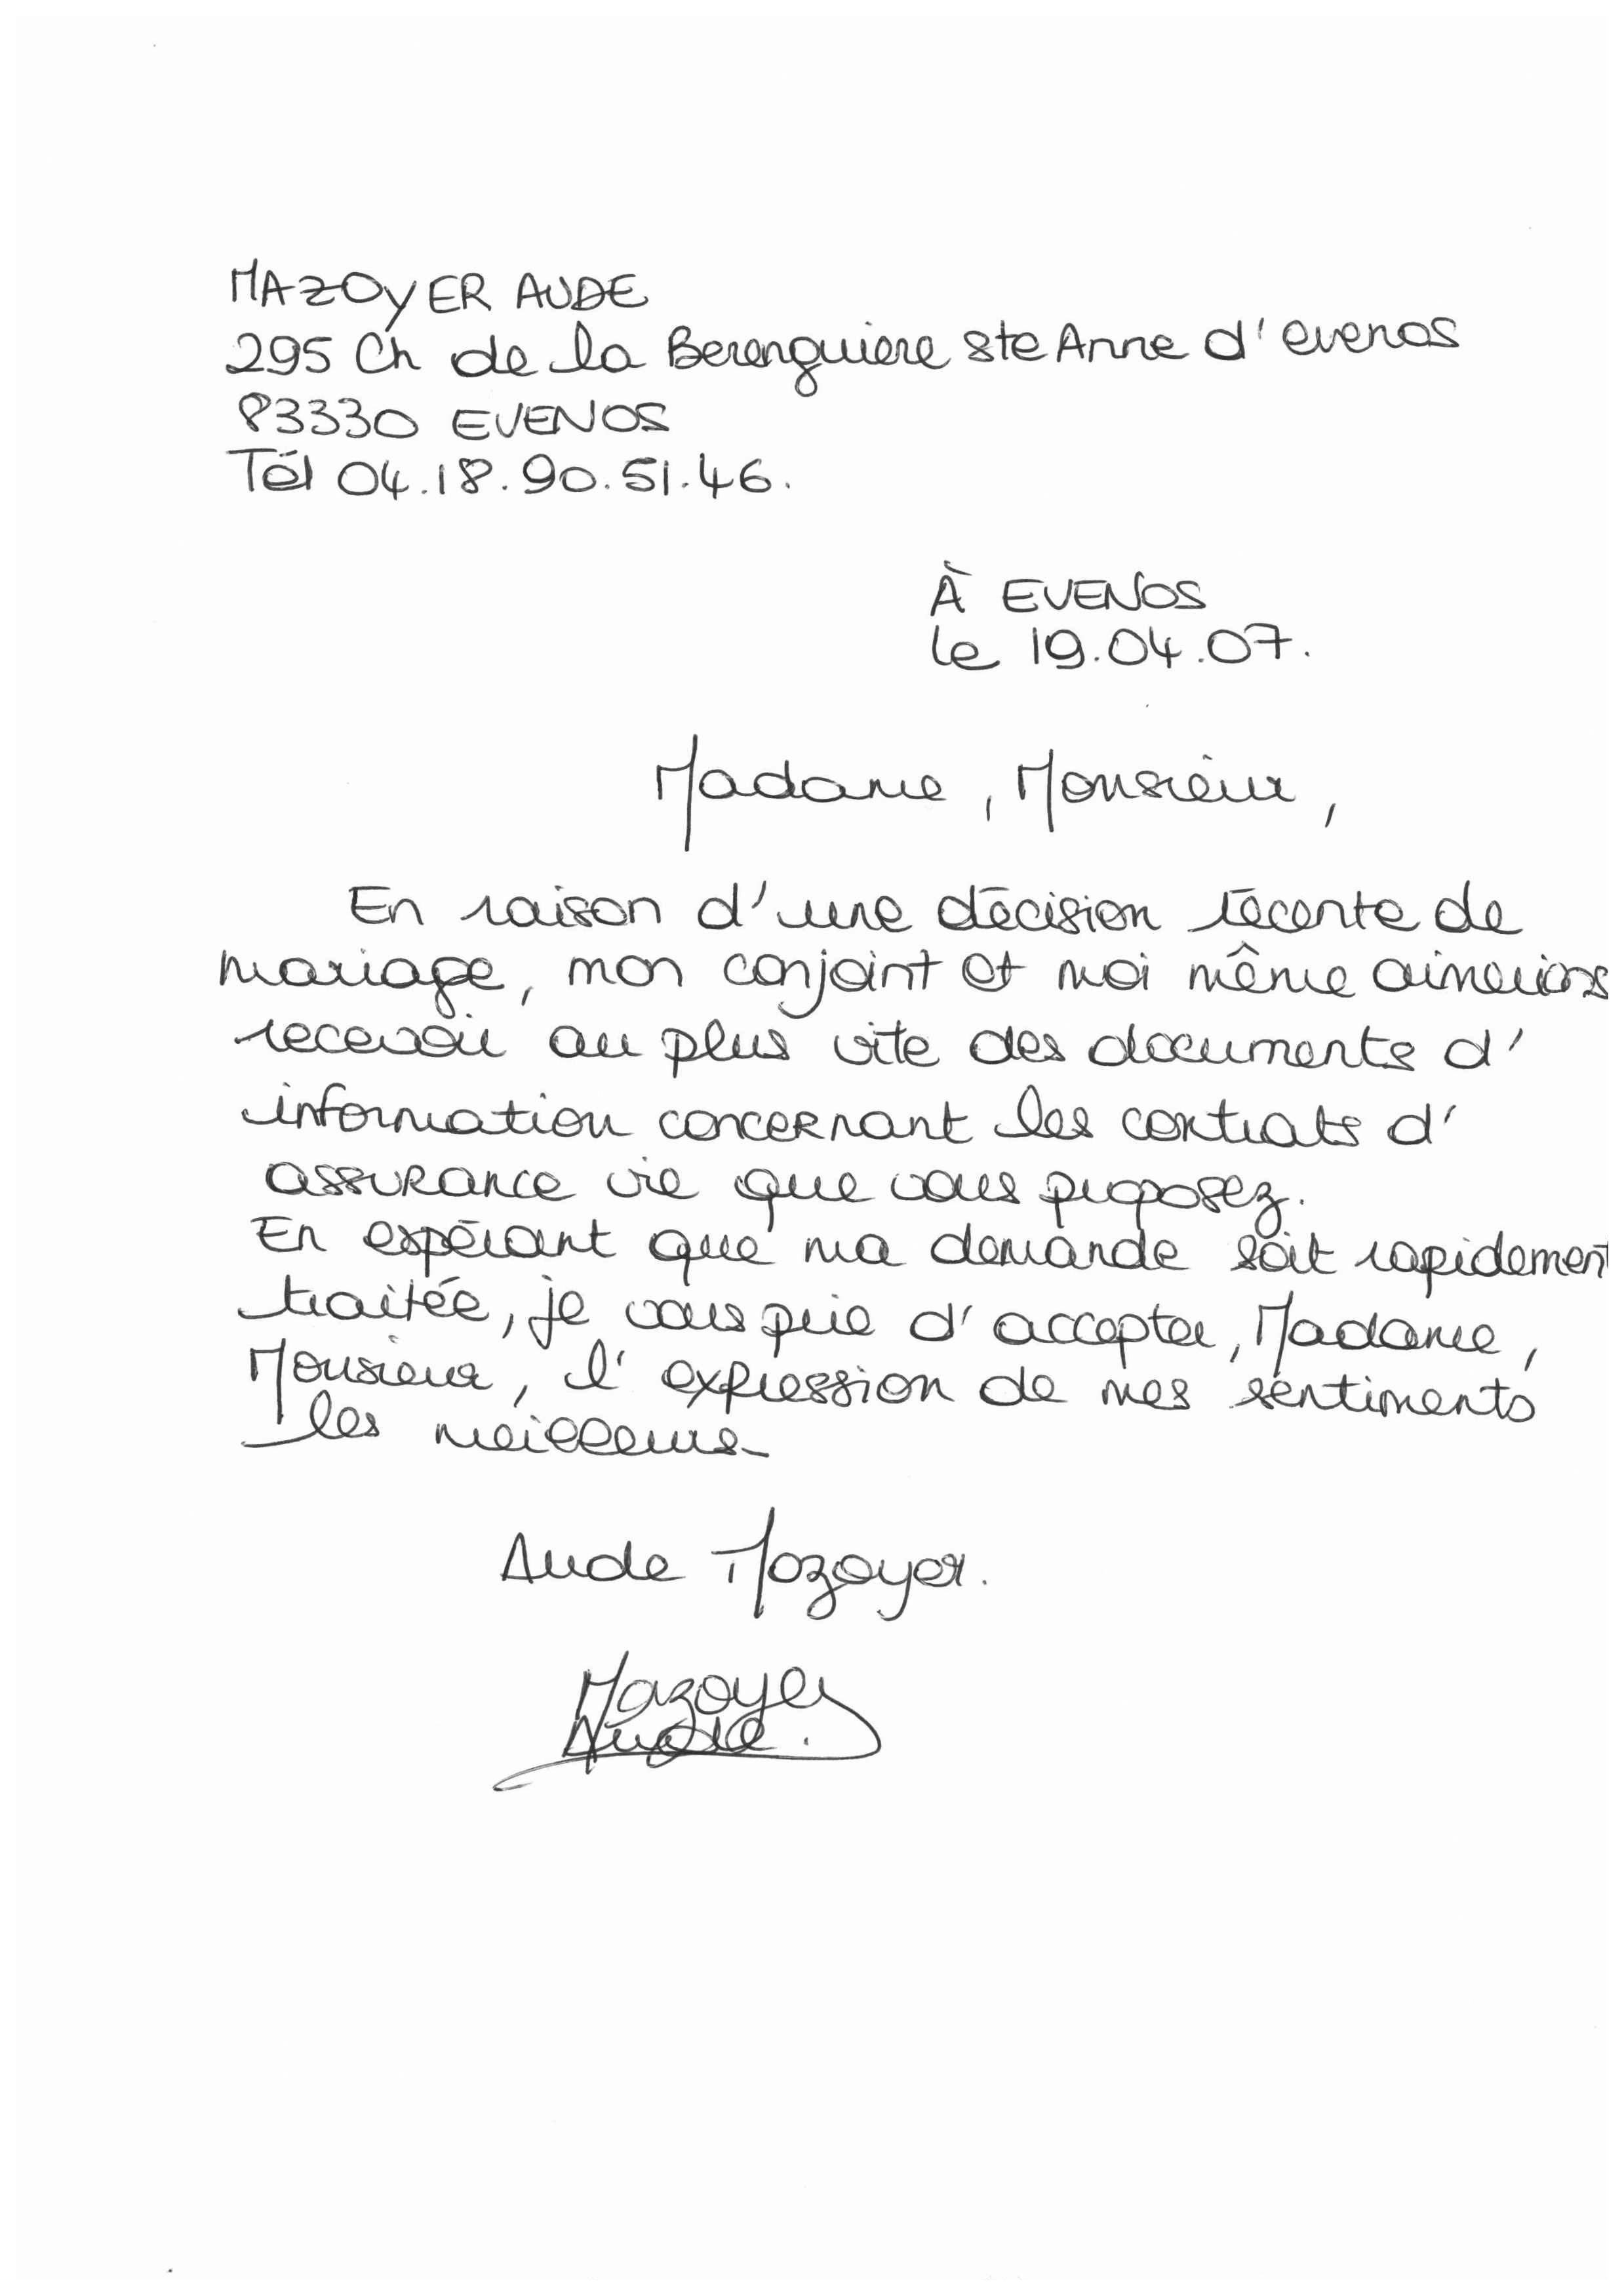 MAZOYER AUDE
295 Ch de la Berenguiere ste Anne d'evenos
83330 EVENOS
Tél 04.18.90.51.46.
À EVENOS
le 19.04.07.
Madame, Monsieur,
En raison d'une décision récente de
mariage, mon conjoint et moi même aimerions
recevoir au plus vite des documents d'
information concernant les contrats d'
assurance vie que vous proposez.
En espérant que ma demande soit rapidement
traitée, je vous prie d'accepter, Madame,
Monsieur, l'expression de mes sentiments
les meilleurs.
Aude Mazoyer.
Mazoyer
Aude.